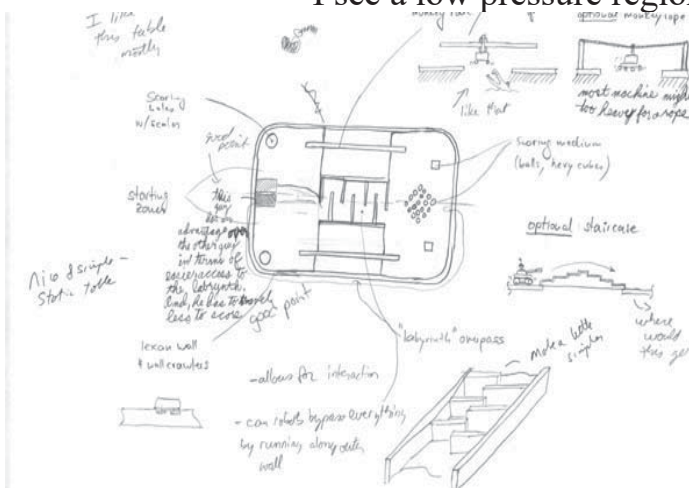 I see a low pressure region
I like
this table
mostly
monkey
optional monkey rope
like that
most machine might
too heavy for a rope
Scoring
holes
w/scales
good
point
scoring medium
(balls, heavy cubes)
starting
zones
this
guy
has an
advantage over
the other guy
in terms of
easier access to
the labyrinth.
And, he has to travel
less to score
good point
optional staircase
Nice & simple -
Static table
where
would
this
lexan wall
& wallcrawlers
"labyrinth" overpass
make a little
simpler
- allows for interaction
- can robots bypass everything
by running along outer
wall